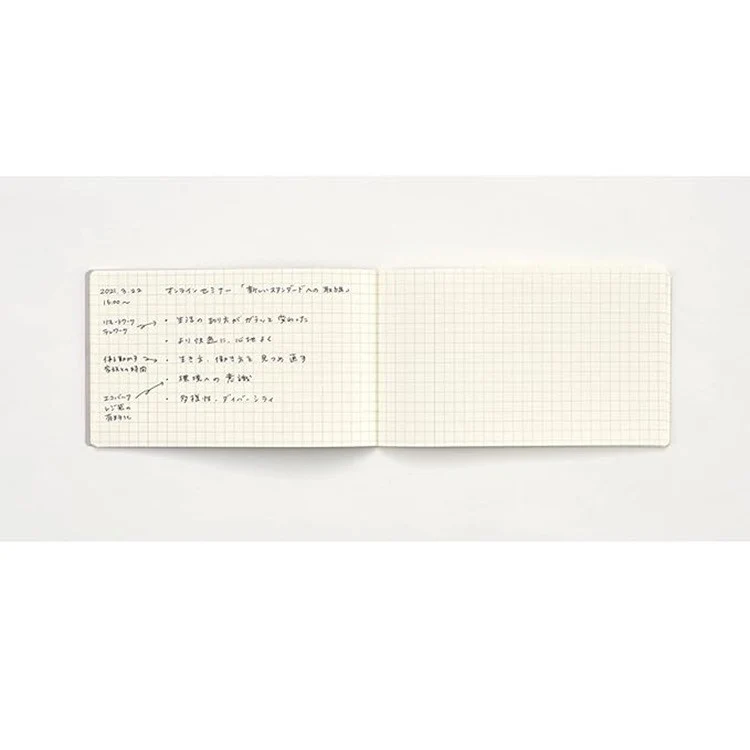 2021.9.22 オンラインセミナー「新しいスタンダードへの取組」
18:00〜
リモートワーク
テレワーク
・生活の在り方がガラッと変わった
・より快適に、心地よく
体を動かす
家族との時間
・生き方、働き方を見つめ直す
・環境への意識
エコバック
レジ袋の
有料化
・多様性、ダイバーシティ